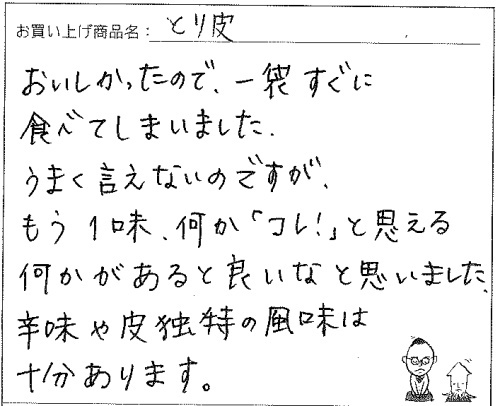 お買い上げ商品名：とり皮
おいしかったので、一袋すぐに
食べてしまいました.
うまく言えないのですが、
もう1味、何か「コレ!」と思える
何かがあると良いなと思いました.
辛味や皮独特の風味は
十分あります。